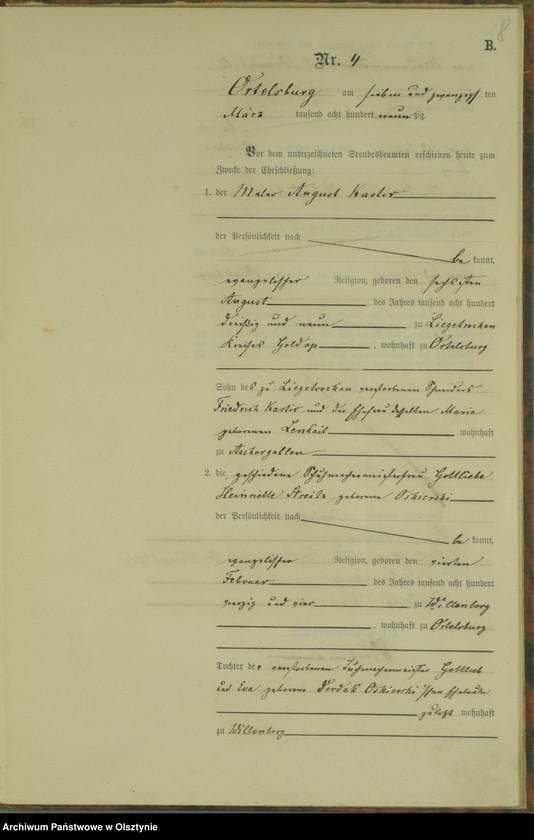 8
B.
Nr. 4
Ortelsburg am sieben und zwanzigsten
März tausend acht hundert neunzig.
Vor dem unterzeichneten Standesbeamten erschienen heute zum
Zwecke der Eheschließung:
1. der Maler August Kastir
der Persönlichkeit nach
be kannt,
evangelischer Religion, geboren den sechsten
August des Jahres tausend acht hundert
dreißig und neun zu Liegetrocken
Kreises Goldap, wohnhaft zu Ortelsburg
Sohn des zu Liegetrocken verstorbenen Schneiders
Friedrich Kastir und der Ehefrau desselben Maria
geborenen wohnhaft
zu
2. die geschiedene Schuhmachermeisterfrau Gottliebe
Heinriette geborene Oskierski
der Persönlichkeit nach
be kannt,
evangelischer Religion, geboren den vierten
Februar des Jahres tausend acht hundert
vierzig und vier zu Willenberg
, wohnhaft zu Ortelsburg
Tochter der verstorbenen Tuchmachermeister Gottlieb
und Eva geborene Oskierski'schen Eheleute
zuletzt wohnhaft
zu Willenberg
Archiwum Państwowe w Olsztynie